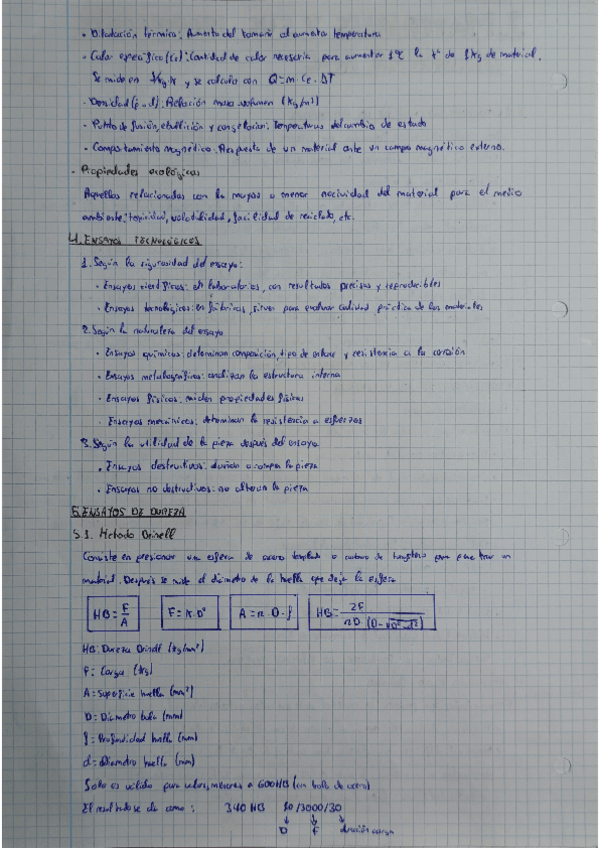 - Dilatación térmica: Aumento del tamaño al aumentar temperatura
- Calor específico (Ce): Cantidad de calor necesaria para aumentar 1ºC la tª de 1kg de material.
Se mide en J/kg·K y se calcula con Q=m·Ce·ΔT
- Densidad (ρ o d): Relación masa volumen (kg/m³)
- Puntos de fusión, ebullición y congelación: Temperaturas del cambio de estado
- Comportamiento magnético: Respuesta de un material ante un campo magnético externo.
- Propiedades ecológicas
Aquellas relacionadas con la mayor o menor nocividad del material para el medio
ambiente: toxicidad, volatilidad, facilidad de reciclado, etc.
4. ENSAYOS TECNOLÓGICOS
1. Según la rigurosidad del ensayo:
• Ensayos científicos: en laboratorios, con resultados precisos y reproducibles
• Ensayos tecnológicos: en fábricas, sirven para evaluar calidad práctica de los materiales
2. Según la naturaleza del ensayo
• Ensayos químicos: determinan composición, tipo de enlace y resistencia a la corrosión
• Ensayos metalográficos: analizan la estructura interna
• Ensayos físicos: miden propiedades físicas
Ensayos mecánicos: determinan la resistencia a esfuerzos
3. Según la utilidad de la pieza después del ensayo
• Ensayos destructivos: dañan o rompen la pieza
• Ensayos no destructivos: no alteran la pieza
5. ENSAYOS DE DUREZA
5.1. Método Brinell
Consiste en presionar una esfera de acero templado o carburo de tungsteno para penetrar un
material. Después se mide el diámetro de la huella que deja la esfera
HB=F/A F=K·D² A=π·D·f HB=2F/πD(D-√D²-d²)
HB: Dureza Brinell (kg/mm²)
F: Carga (kg)
A=Superficie huella (mm²)
D=Diámetro bola (mm)
f=Profundidad huella (mm)
d=Diámetro huella (mm)
Solo es válido para valores menores a 600HB (con bola de acero)
El resultado se da como: 340 HB 10/3000/30
D F duración carga